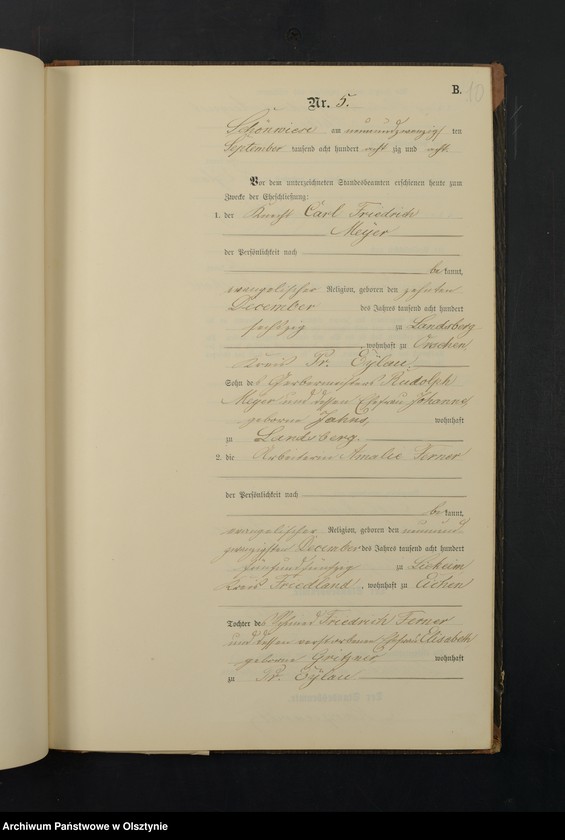 B.
10
Nr. 5.
Schönwiese am neunundzwanzig ten
September tausend acht hundert acht zig und acht.
Vor dem unterzeichneten Standesbeamten erschienen heute zum
Zwecke der Eheschließung:
1. der Knecht Carl Friedrich
Meyer
der Persönlichkeit nach
be kannt,
evangelischer Religion, geboren den zehnten
December des Jahres tausend acht hundert
sechzig zu Landsberg
, wohnhaft zu Orschen
Kreis Pr. Eylau.
Sohn des Gerbermeisters Rudolph
Meyer und dessen Ehefrau Johanne
geborne Jahns, wohnhaft
zu Landsberg.
2. die Arbeiterin Amalie Ferner
der Persönlichkeit nach
be kannt,
evangelischer Religion, geboren den neunund
zwanzigsten December des Jahres tausend acht hundert
fünfundfünfzig zu
Kreis Friedland, wohnhaft zu Eichen
Tochter des Friedrich Ferner
und dessen verstorbenen Ehefrau Elisabeth
geborne Gritzner wohnhaft
zu Pr. Eylau
Archiwum Państwowe w Olsztynie